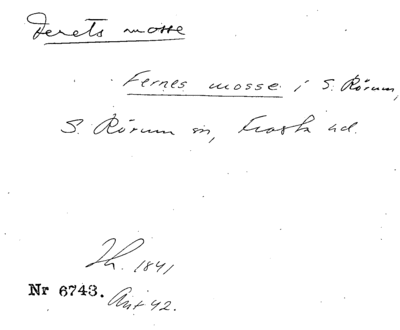 Derets mosse
Fernes mosse i S. Rörum,
S. Rörum sn, Frosta hd.
Th. 1841
Nr 6743. Ant 42.